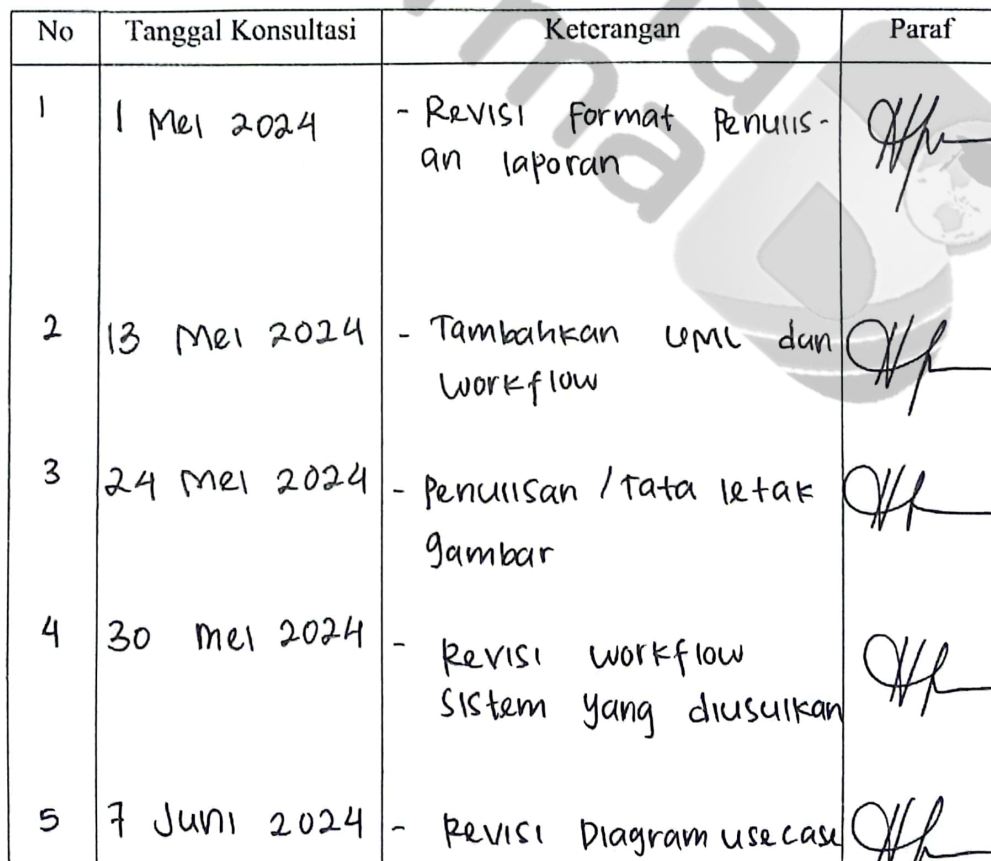 No Tanggal Konsultasi Keterangan Paraf
1 1 Mei 2024 - Revisi Format Penulis-
an laporan
2 13 Mei 2024 - Tambahkan UML dan
Workflow
3 24 Mei 2024 - Penulisan / Tata letak
gambar
4 30 Mei 2024 - Revisi workflow
Sistem yang diusulkan
5 7 Juni 2024 - Revisi Diagram usecase